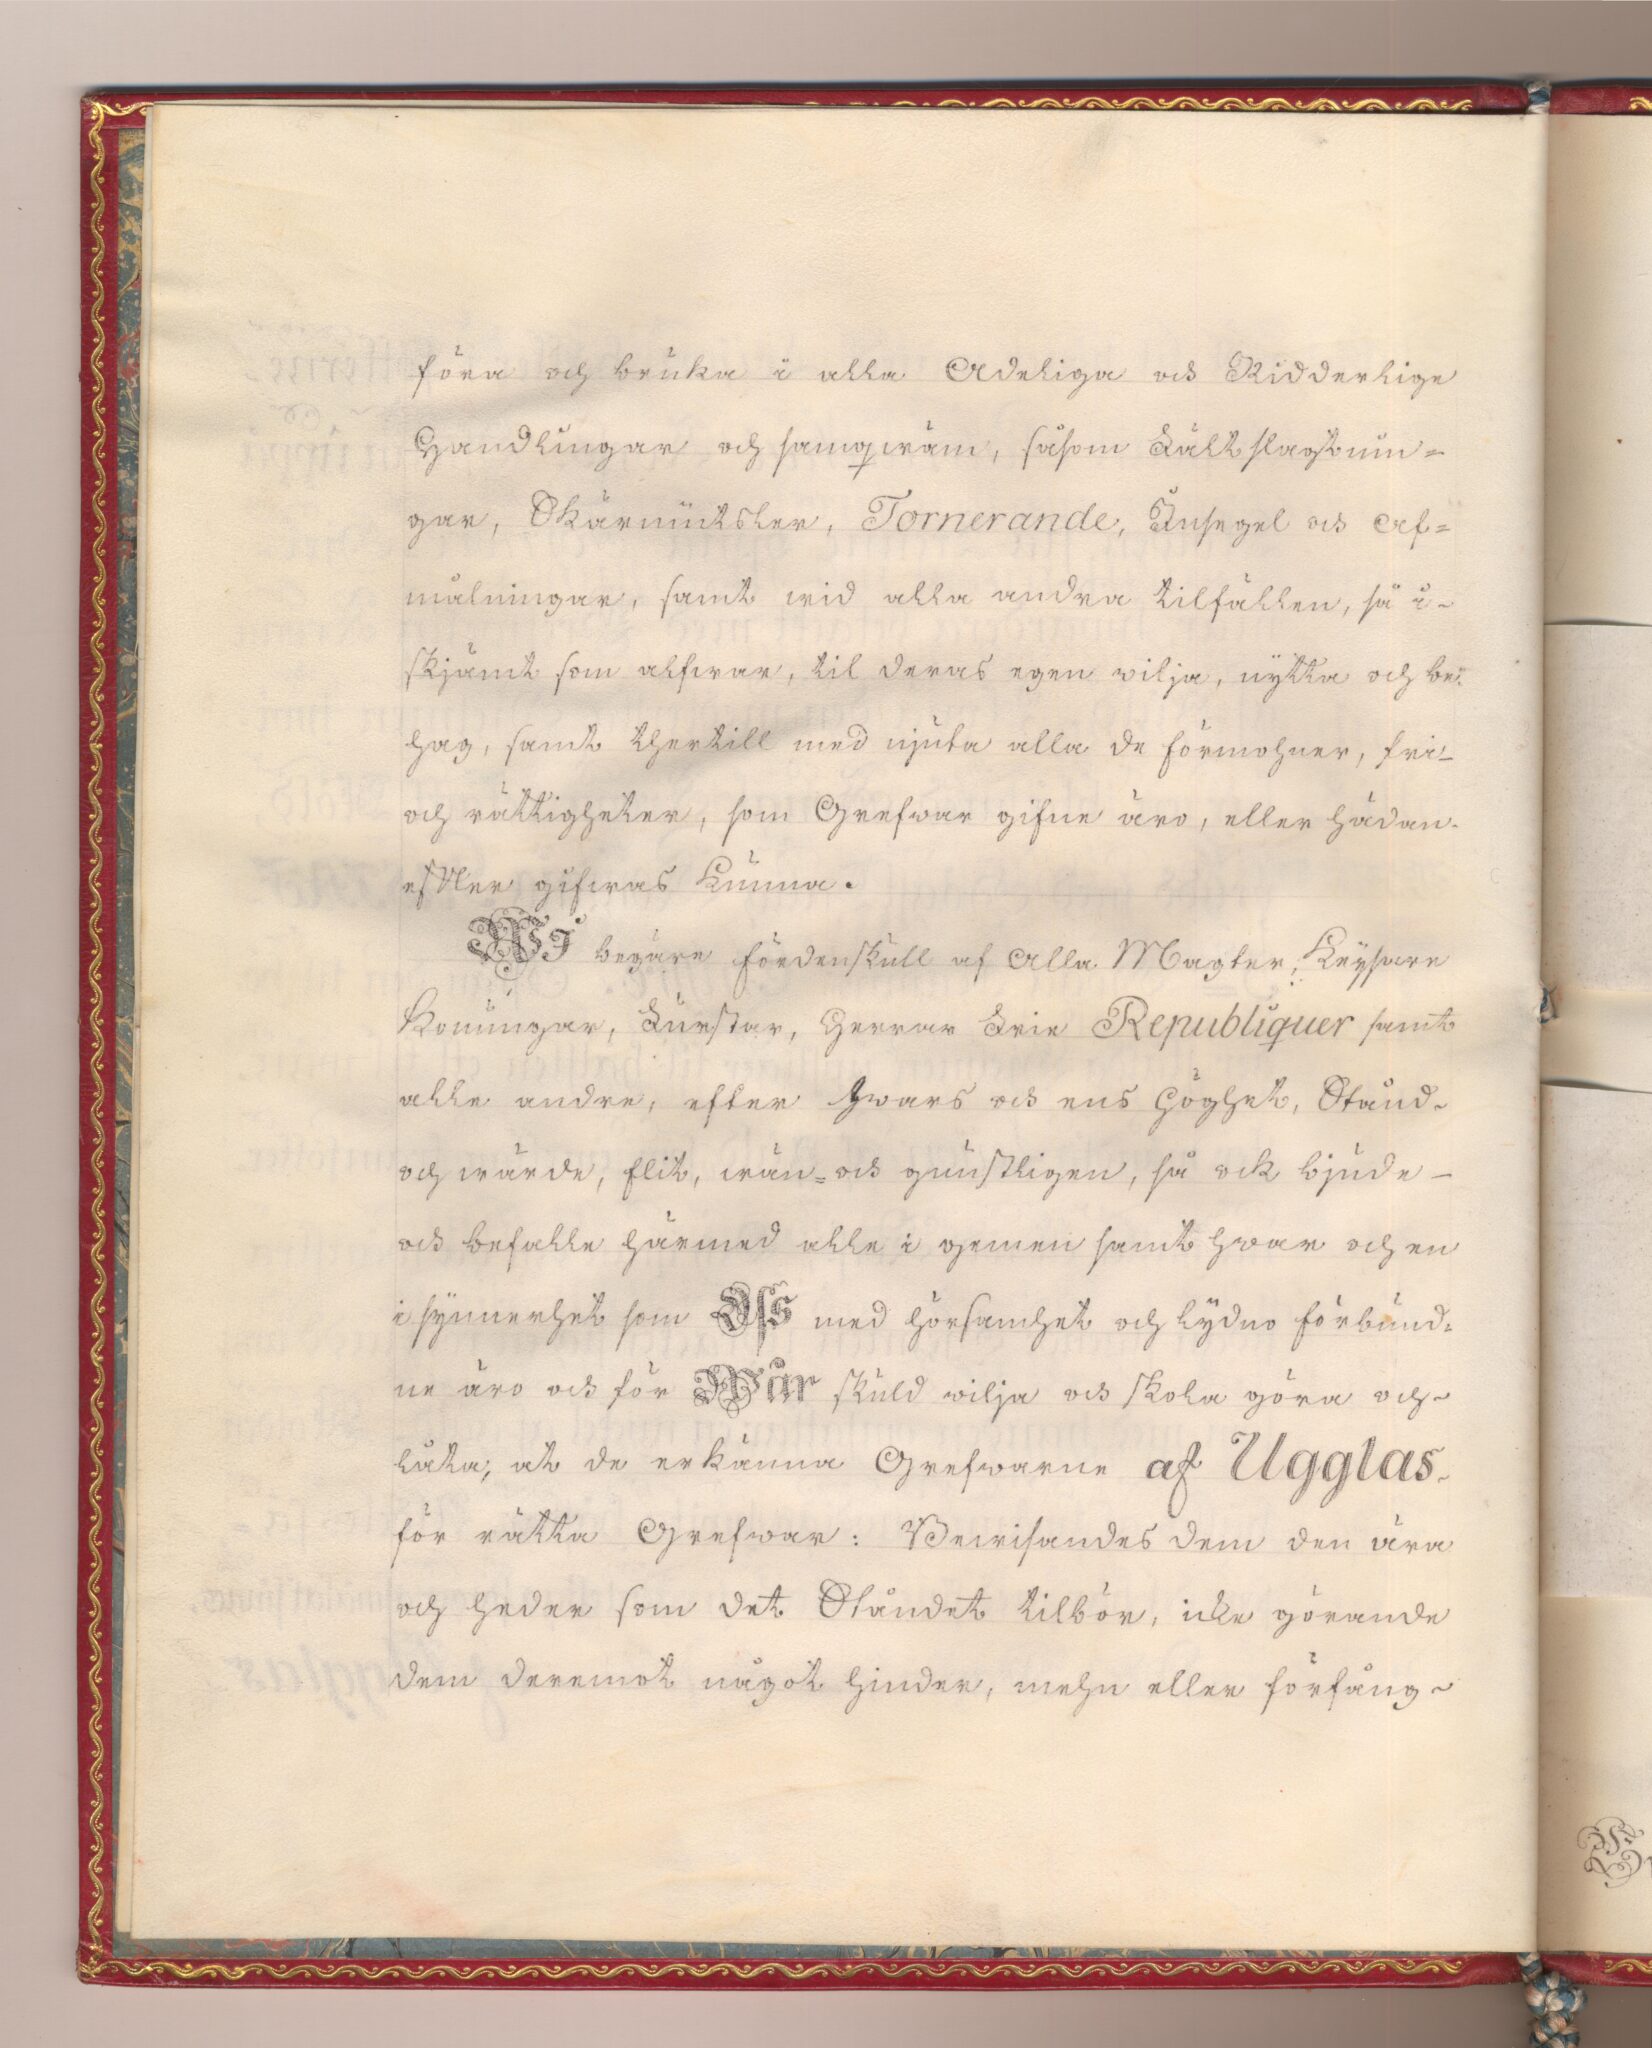 föra och bruka i alla Adeliga och Ridderlige
Handlingar och samqwäm, såsom Fältslagtnin=
gar, Skärmützler, Tornerande, Insegel och Af=
målningar, samt wid alla andra tilfällen, så i-
skjämt som alfwar, til deras egen wilja, nytta och be-
hag, samt thertill med njuta alla de förmohner, fri-
och rättigheter, som Grefwar gifne äro, eller hädan-
efter gifwas kunna.
Wi begäre fördenskull af Alla Magter, Keysare
Konungar, Furstar, Herrar Frie Republiquer samt
alle andre, efter hwars och ens Höghet, Stånd-
och wärde, flit, wän=och gunstligen, så ock bjude-
och befalle härmed alle i gemen samt hwar och en
i synnerhet som Oss med hörsamhet och lydno förbund-
ne äro och för Wår skuld wilja och skola göra och-
låta, at de erkänna Grefwarne af Ugglas-
för rätta Grefwar: Bewisandes dem den ära
och heder som det Ståndet tilbör, icke görande
dem deremot något hinder, mehn eller förfång-